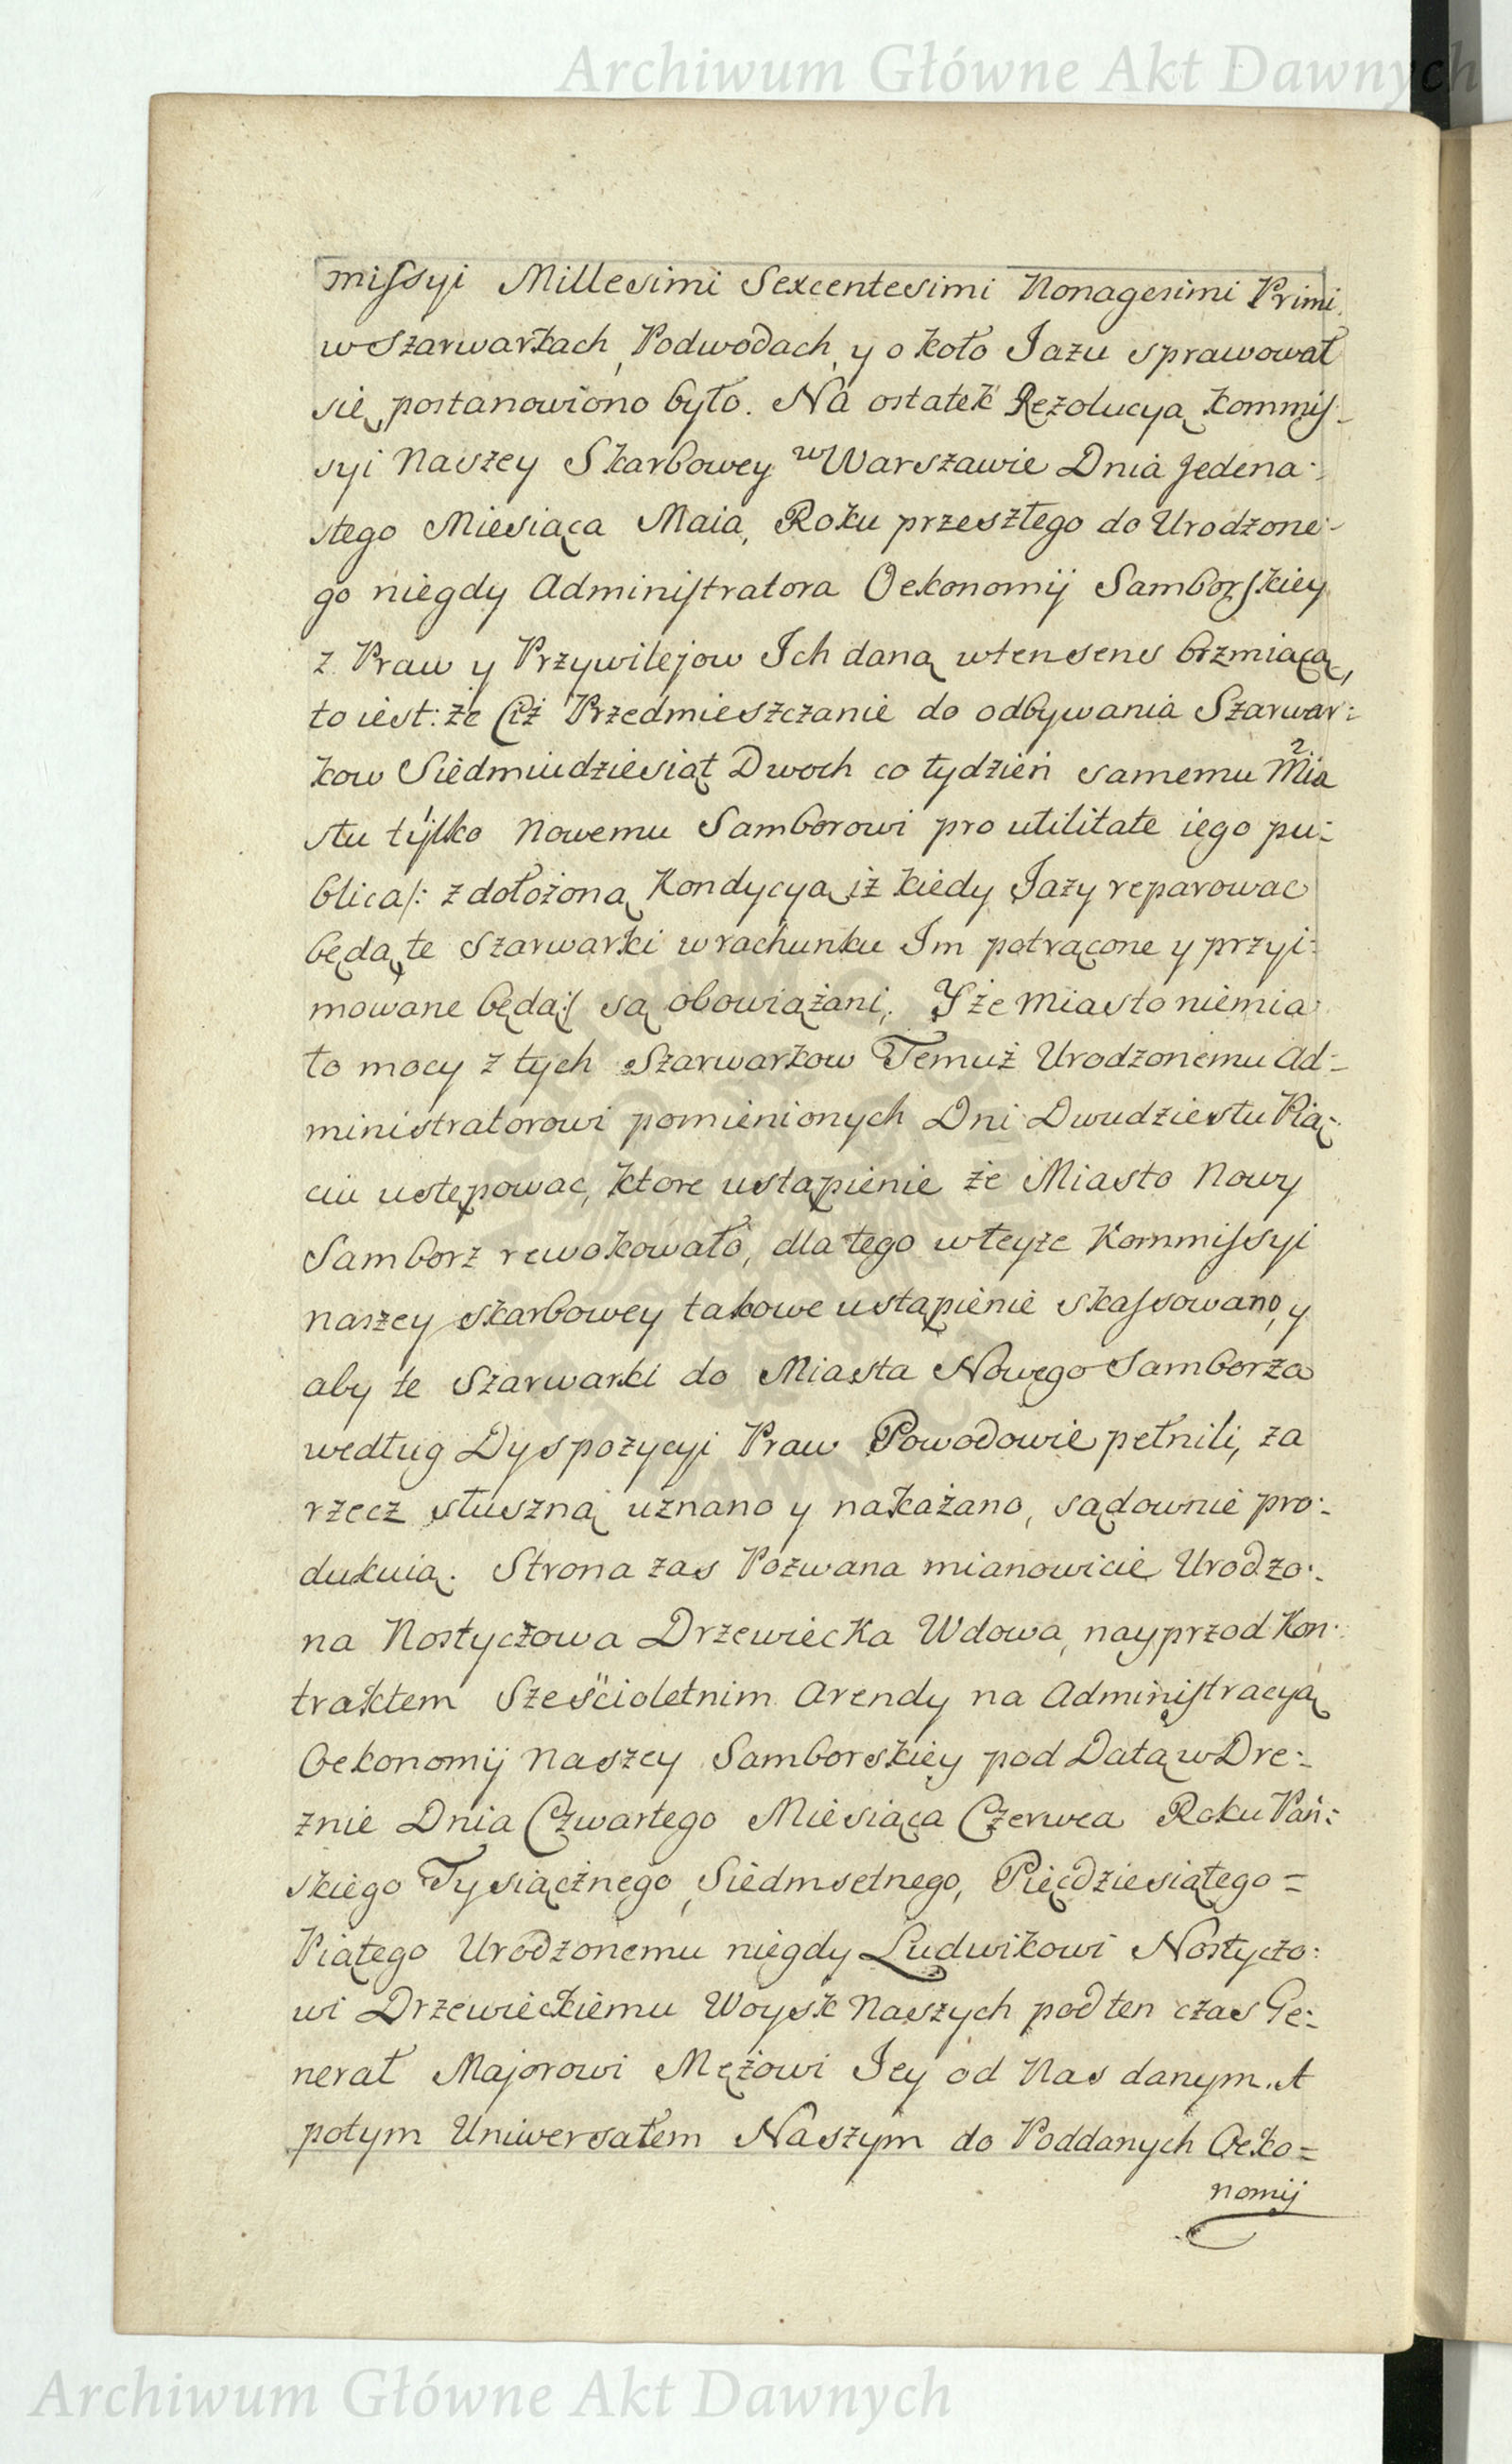 Archiwum Główne Akt Dawnych
missyi Millesimi Sexcentesimi Nonagesimi Primi
w Szarwarkach, Podwodach, y około Jazu sprawował
się postanowiono było. Na ostatek Rezolucyą Kommis-
syi Naszey Skarbowey w Warszawie Dnia Jedena:
stego Miesiąca Maia, Roku przeszłego do Urodzone:
go niegdy Administratora Oekonomij Samborskiey
z Praw y Przywilejow Ich daną w ten sens brzmiącą,
to iest: że Ciż Przedmieszczanie do odbywania Szarwar:
kow Siedmiudziesiąt Dwoch co tydzień samemu Mia
stu tylko Nowemu Samborowi pro utilitate iego pu:
blica/: z dołożoną Kondycyą iż kiedy Jazy reparowac
będą te Szarwarki w rachunku Im potrącone y przyi:
mowane będą:/ są obowiązani. Y że Miasto niemia
ło mocy z tych Szarwarkow Temuż Urodzonemu Ad:
ministratorowi pomienionych Dni Dwudziestu Pią:
ciu ustępowac, ktore ustąpienie że Miasto Nowy
Samborz rewokowało, dla tego w teyże Kommissyi
naszey skarbowey takowe ustąpienie skassowano, y
aby te Szarwarki do Miasta Nowego Samborza
według Dyspozycyi Praw Powodowie pełnili, za
rzecz słuszną uznano y nakazano, sądownie pro:
dukuią. Strona zas Pozwana mianowicie Urodzo:
na Nostyczowa Drzewiecka Wdowa, nayprzod Kon:
traktem Sześcioletnim Arendy na Administracyą
Oekonomij Naszey Samborskiey pod Datą w Dre:
znie Dnia Czwartego Miesiąca Czerwca Roku Pań:
skiego Tysiącznego Siedmsetnego, Pięcdziesiątego =
Piątego Urodzonemu niegdy Ludwikowi Nostyczo:
wi Drzewieckiemu Woysk Naszych pod ten czas Ge:
nerał Majorowi Mężowi Jey od Nas danym. A
potym Uniwersałem Naszym do Poddanych Oeko=
nomij
Archiwum Główne Akt Dawnych